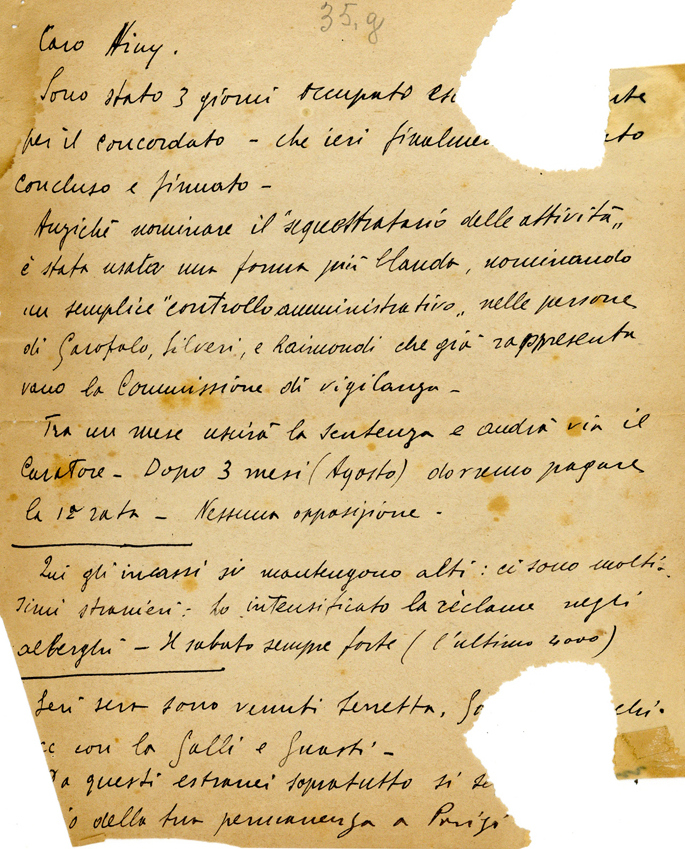 35, g
Caro
Sono stato 3 giorni occupato
per il concordato – che ieri
concluso e firmato –
Anzichè nominare il "sequestratario delle attività„
è stata usata una forma più blanda, nominando
un semplice "controllo amministrativo„ nelle persone
di Garofalo, Silveri, e Raimondi che già rappresenta
vano la Commissione di vigilanza –
Tra un mese uscirà la sentenza e andrà via il
Curatore – Dopo 3 mesi (Agosto) dovremo pagare
la 1ª rata – Nessuna opposizione –
Qui gli incassi si mantengono alti: ci sono moltis-
simi stranieri: ho intensificato la rèclame negli
alberghi – Il sabato sempre forte (l'ultimo 4000)
Ieri sera sono venuti
con la Galli e Guasti –
questi estranei sopratutto si
della tua permanenza a Parigi